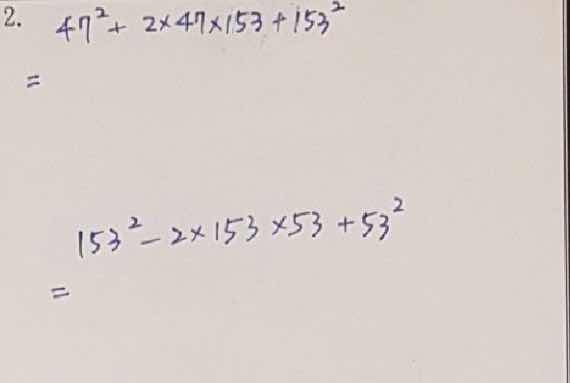 2. 47² + 2×47×153 + 153²
=
153² - 2×153×53 + 53²
=